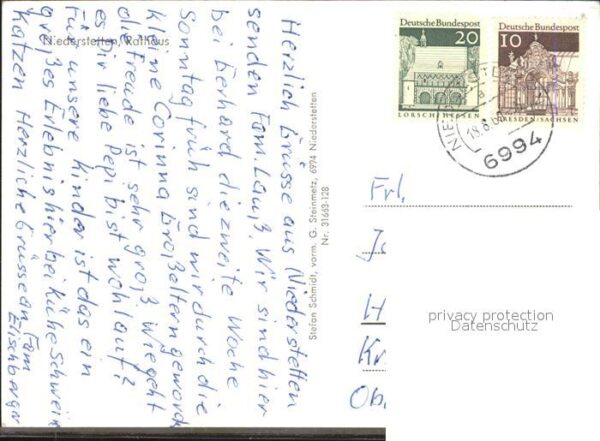 Niederstetten, Rathaus
Herzlich Grüsse aus Niederstetten
senden Fam. Lauß. Wir sind hier
bei Gerhard die zweite Woche
Sonntag früh sind wir durch die
kleine Corinna Großeltern geword
die Freude ist sehr groß Wie geht
es Dir liebe Pepi bist wohlauf?
Für unsere Kinder ist das ein
großes Erlebnis hier bei Kühe Schwein
Katzen Herzliche Grüsse an Fam
Elschberger
Stefan Schmidt, vorm. G. Steinmetz, 6994 Niederstetten
Nr. 31663-128
Deutsche Bundespost
20
LORSCH/HESSEN
Deutsche Bundespost
10
DRESDEN/SACHSEN
6994
Frl.
H
Kr
Ob
privacy protection
Datenschutz